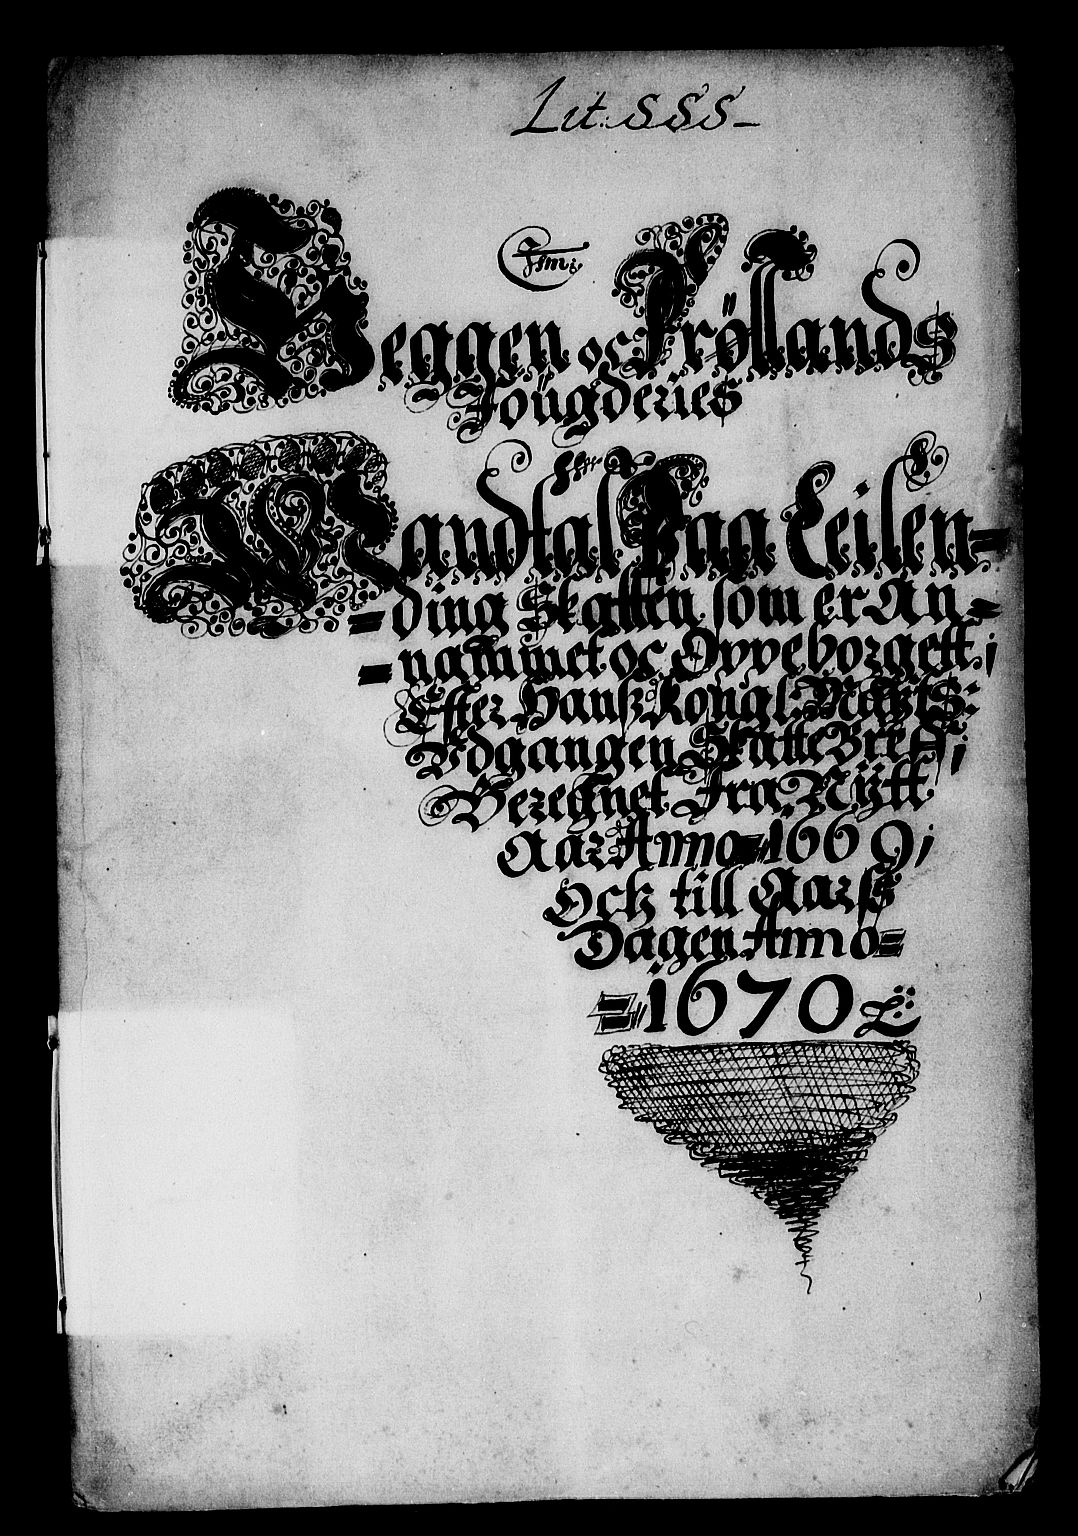 Lit: SSS
Heggen oc Frøllands
Foügderies
Mandtal Paa Leilen-
ding Skatten som er An-
nammet oc Opveborgett;
Effter Hanß Kongl: Maÿts:
Udgangen Skatte Breff;
Beregnet Fra Nÿtt
Aar Anno 1669;
Ock till Aarß
Dagen Anno
1670